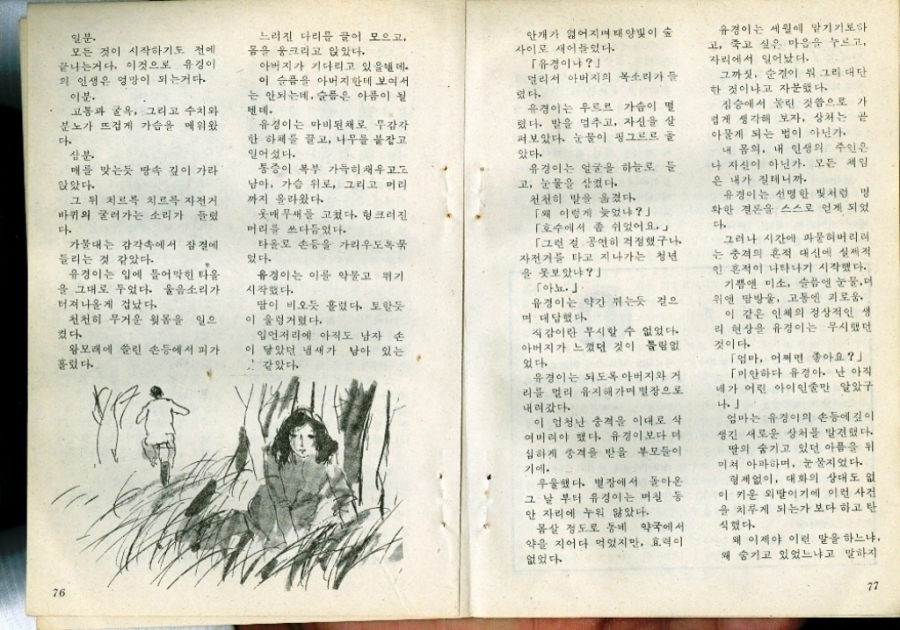 일분.
모든 것이 시작하기도 전에
끝나는거다. 이것으로 유경이
의 인생은 엉망이 되는거다.
이분.
고통과 굴욕, 그리고 수치와
분노가 뜨겁게 가슴을 메워왔
다.
삼분.
매를 맞는듯 땅속 깊이 가라
앉았다.
그 뒤 치르륵 치르륵 자전거
바퀴의 굴러가는 소리가 들렸
다.
가물대는 감각속에서 잠결에
들리는 것 같았다.
유경이는 입에 틀어막힌 타올
을 그대로 두었다. 울음소리가
터져나올게 겁났다.
천천히 무거운 윗몸을 일으
켰다.
왕모래에 쓸린 손등에서 피가
흘렀다.
느러진 다리를 끌어 모으고,
몸을 웅크리고 앉았다.
아버지가 기다리고 있을텐데.
이 슬픔을 아버지한테 보여서
는 안되는데, 슬픔은 아픔이 될
텐데.
유경이는 마비된채로 무감각
한 하체를 끌고, 나무를 붙잡고
일어섰다.
통증이 복부 가득히 채우고도
남아, 가슴 위로, 그리고 머리
까지 올라왔다.
옷매무새를 고쳤다. 헝크러진
머리를 쓰다듬었다.
타올로 손등을 가리우도록 묶
었다.
유경이는 이를 악물고 뛰기
시작했다.
땀이 비오듯 흘렀다. 토할듯
이 울렁거렸다.
입언저리에 아직도 남자 손
이 닿았던 냄새가 남아 있는
것 같았다.
76
안개가 엷어지며 태양빛이 숲
사이로 새어들었다.
「유경이냐?」
멀리서 아버지의 목소리가 들
렸다.
유경이는 우르르 가슴이 떨
렸다. 발을 멈추고, 자신을 살
펴보았다. 눈물이 핑그르르 돌
았다.
유경이는 얼굴을 하늘로 들
고, 눈물을 삼켰다.
천천히 발을 옮겼다.
「왜 이렇게 늦었냐?」
「호수에서 좀 쉬었어요.」
「그런 걸 공연히 걱정했구나.
자전거를 타고 지나가는 청년
을 못보았냐?」
「아뇨.」
유경이는 약간 뛰는듯 걸으
며 대답했다.
직감이란 무시할 수 없었다.
아버지가 느꼈던 것이 틀림없
었다.
유경이는 되도록 아버지와 거
리를 멀리 유지해가며 별장으로
내려갔다.
이 엄청난 충격을 이대로 삭
여버려야 했다. 유경이보다 더
심하게 충격을 받을 부모들이
기에.
우울했다. 별장에서 돌아온
그 날 부터 유경이는 며칠 동
안 자리에 누워 앓았다.
몸살 정도로 동네 약국에서
약을 지어다 먹었지만, 효력이
없었다.
유경이는 세월에 맡기기로하
고, 죽고 싶은 마음을 누르고,
자리에서 일어났다.
그까짓, 순결이 뭐 그리 대단
한 것이냐고 자문했다.
짐승에서 물린 것쯤으로 가
볍게 생각해 보자. 상처는 곧
아물게 되는 법이 아닌가.
내 몸의, 내 인생의 주인은
나 자신이 아닌가. 모든 책임
은 내가 질테니까.
유경이는 선명한 빛처럼 명
확한 결론을 스스로 얻게 되었
다.
그러나 시간에 파묻혀버리려
는 충격의 흔적 대신에 실제적
인 흔적이 나타나기 시작했다.
기쁨엔 미소, 슬픔엔 눈물, 더
위엔 땀방울, 고통엔 괴로움,
이 같은 인체의 정상적인 생
리 현상을 유경이는 무시했던
것이다.
「엄마, 어쩌면 좋아요?」
「미안하다 유경아. 난 아직
네가 어린 아이인줄만 알았구
나.」
엄마는 유경이의 손등에 깊이
생긴 새로운 상처를 발견했다.
딸의 숨기고 있던 아픔을 뒤
미처 아파하며, 눈물지었다.
형제없이, 대화의 상대도 없
이 키운 외딸이기에 이런 사건
을 치루게 되는가 보다 하고 탄
식했다.
왜 이제야 이런 말을 하느냐,
왜 숨기고 있었느냐고 말하지
77